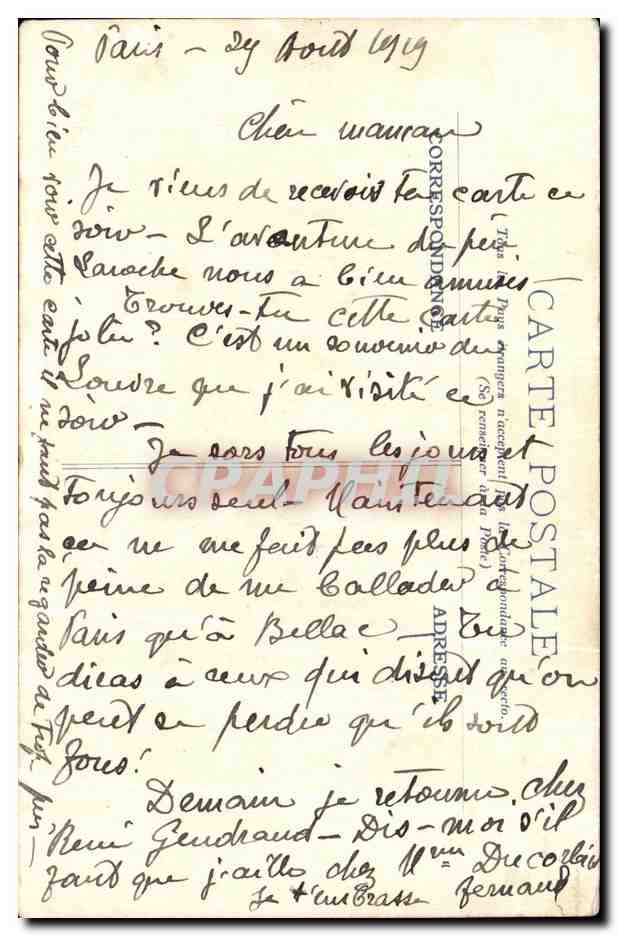 Paris - 29 Août 1919
Chère maman
Je viens de recevoir ta carte ce
soir - L'aventure du père
Laroche nous a bien amusés
Trouves-tu cette carte
jolie? C'est un souvenir du
Louvre que j'ai visité ce
soir -
Je sors tous les jours et
toujours seul - Maintenant
ça ne me fait pas plus de
peine de me ballader à
Paris qu'à Bellac - Tu
diras à ceux qui disent qu'on
peut se perdre qu'ils sont
fous!
Demain je retourne chez
René Gendraud - Dis-moi s'il
faut que j'aille chez Mme
Je t'embrasse Fernand
Pour bien voir cette carte il ne faut pas la regarder de trop près -
CARTE POSTALE
(Tous les Pays étrangers n'acceptent pas la Correspondance au recto.
(Se renseigner à la Poste)
CORRESPONDANCE
ADRESSE
CPARAMA